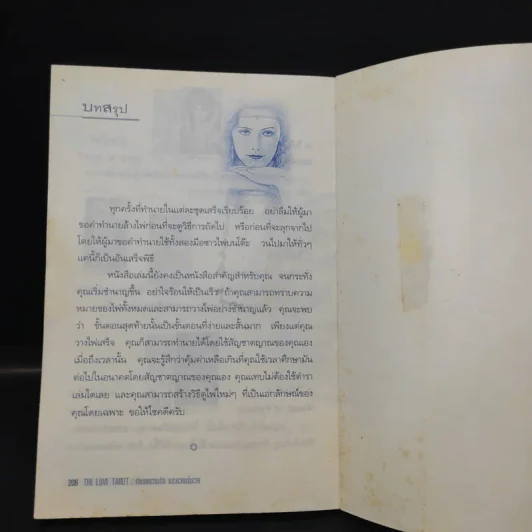 บทสรุป
ทุกครั้งที่ทำนายในแต่ละชุดเสร็จเรียบร้อย อย่าลืมให้ผู้มา
ขอคำทำนายล้างไพ่ก่อนที่จะดูวิธีการถัดไป หรือก่อนที่จะลุกจากไป
โดยให้ผู้มาขอคำทำนายใช้ทั้งสองมือซาวไพ่บนโต๊ะ วนไปมาให้ทั่วๆ
แค่นี้ก็เป็นอันเสร็จพิธี
หนังสือเล่มนี้ยังคงเป็นหนังสือสำคัญสำหรับคุณ จนกระทั่ง
คุณเริ่มชำนาญขึ้น อย่าใจร้อนให้เป็นเร็ว ถ้าคุณสามารถทราบความ
หมายของไพ่ทั้งหมดและสามารถวางไพ่อย่างชำนาญแล้ว คุณจะพบ
ว่า ขั้นตอนสุดท้ายนั้นเป็นขั้นตอนที่ง่ายและสั้นมาก เพียงแต่คุณ
วางไพ่เสร็จ คุณก็สามารถทำนายได้โดยใช้สัญชาตญาณของคุณเอง
เมื่อถึงเวลานั้น คุณจะรู้สึกว่าคุ้มค่าเหลือเกินที่คุณใช้เวลาศึกษามัน
ต่อไปในอนาคตโดยสัญชาตญาณของคุณเอง คุณแทบไม่ต้องใช้ตำรา
เล่มใดเลย และคุณสามารถสร้างวิธีดูไพ่ใหม่ๆ ที่เป็นเอกลักษณ์ของ
คุณโดยเฉพาะ ขอให้โชคดีครับ
206 THE LOVE TAROT :